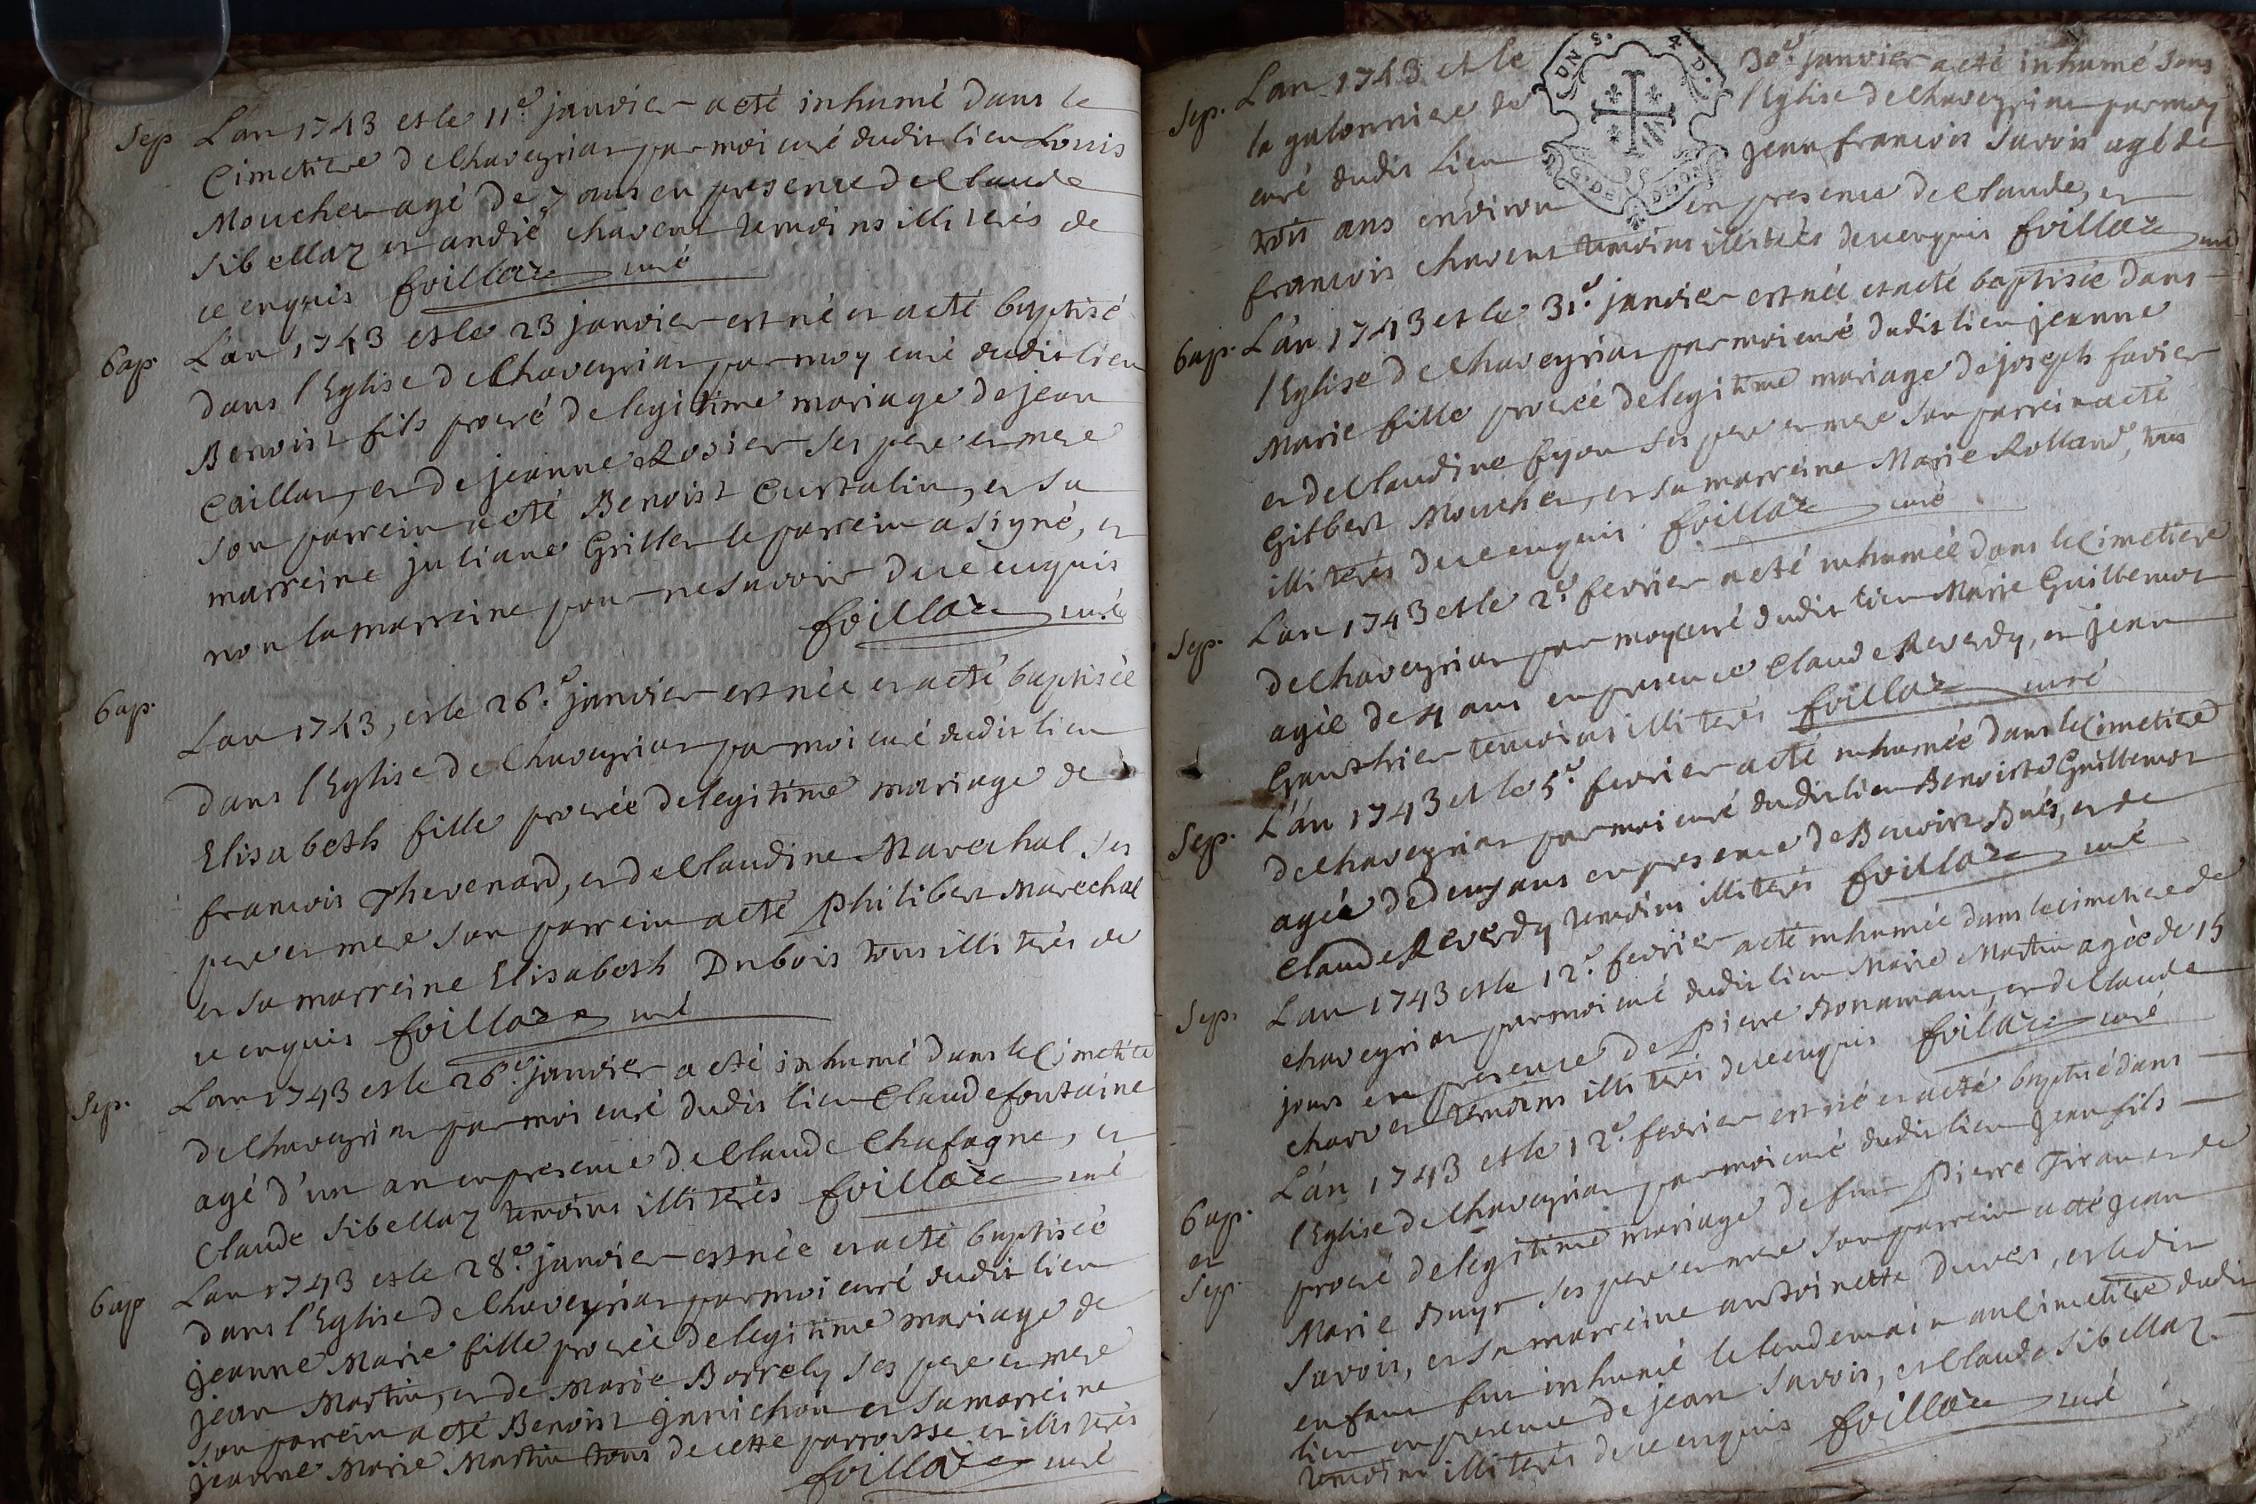 Sep Lan 1743 et le 11e janvier a eté inhumé dans le
Cimetiere de Chaveyriat par moi curé dudit lieu Louis
Mouchet agé de 7 ans en presence de Claude
Sibellaz et andré chavent temoins illiterés de
ce enquis foillaz curé
bap. Lan 1743 et le 23 janvier est né et a eté baptisé
dans l'Eglise de Chaveyriat par moy curé dudit lieu
Benoist fils procré de legitime mariage de jean
Caillat, et de jeanne Rosier ses pere et mere
son parrein a eté Benoist Curtalin, et sa
marreine juliane Grillet le parrein a signé, et
non la marreine pour ne savoir de ce enquis
foillaz curé
bap. Lan 1743, et le 26e janvier est née et a eté baptisée
dans l'Eglise de Chaveyriat par moi curé dudit lieu
Elisabeth fille procrée de legitime mariage de
francois Thevenard, et de Claudine Marechal ses
pere et mere son parrein a eté philibert Marechal
et sa marreine Elisabeth Dubois tous illiterés de
ce enquis foillaz curé
Sep. Lan 1743 et le 26e janvier a eté inhumé dans le Cimetiere
de Chaveyriat par moi curé dudit lieu Claude fontaine
agé d'un an en presence de Claude Chafagne, et
Claude Sibellaz temoins illiterés foillaz curé
bap Lan 1743 et le 28e janvier est née et a eté baptisée
dans l'Eglise de Chaveyriat par moi curé dudit lieu
jeanne Marie fille procrée de legitime mariage de
jean Martin, et de Marie Borrely ses pere et mere
son parrein a eté Benoist janichon et sa marreine
jeanne Marie Martin tous de cette parroisse et illiterés
foillaz curé
UN S. 4 D.
G. DE DIJON
Sep. Lan 1743 et le 30e janvier a eté inhumé sous
la galonniere de l'Eglise de Chaveyriat par moy
curé dudit lieu jean francois Savois agé de
trois ans environ en presence de Claude, et
francois chavent temoins illiterés de ce enquis foillaz curé
bap. Lán 1743 et le 31e janvier est née et a eté baptisée dans
l'Eglise de Chaveyriat par moi curé dudit lieu jeanne
Marie fille procrée de legitime mariage de joseph favier
et de Claudine fyon ses pere et mere son parrein a eté
Gilbert Mouchet, et sa marreine Marie Rolland, tous
illiterés de ce enquis foillaz curé
Sep. Lan 1743 et le 2e fevrier a eté inhumée dans le Cimetiere
de Chaveyriat par moy curé dudit lieu Marie Guillemot
agée de 4 ans en presence Claude Reverdy, et jean
Gauthier temoins illiterés foillaz curé
Sep. Lán 1743 et le 5e fevrier a eté inhumée dans le Cimetiere
de Chaveyriat par moi curé dudit lieu Benoiste Guillemot
agée de deux ans en presence de Benoist Bués, et de
Claude Reverdy temoins illiterés foillaz curé
Sep. Lan 1743 et le 12e fevrier a eté inhumée dans le cimetiere de
chaveyriat par moi curé dudit lieu Marie Martin agée de 15
jours en presence de pierre Bonamant, et de Claude
charvet temoins illiterés de ce enquis foillaz curé
bap. et Sep. Lán 1743 et le 12e fevrier est né et a eté baptisé dans
l'Eglise de Chaveyriat par moi curé dudit lieu jean fils
procré de legitime mariage de feu pierre Tiran et de
Marie Buyr ses pere et mere son parrein a eté jean
Savois, et sa marreine antoinette Duver, et ledit
enfant fut inhumé le lendemain au Cimetiere dudit
lieu en presence de jean Savois, et Claude Sibellaz
temoins illiterés de ce enquis foillaz curé